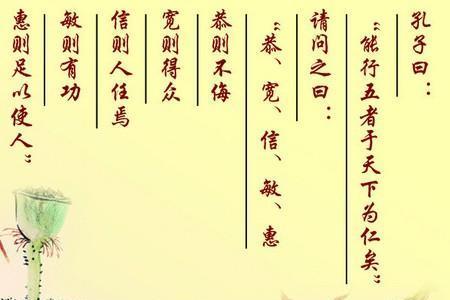 孔子曰：
“能行五者于天下为仁矣。”
请问之曰：
“恭、宽、信、敏、惠
恭则不侮
宽则得众
信则人任焉
敏则有功
惠则足以使人。”